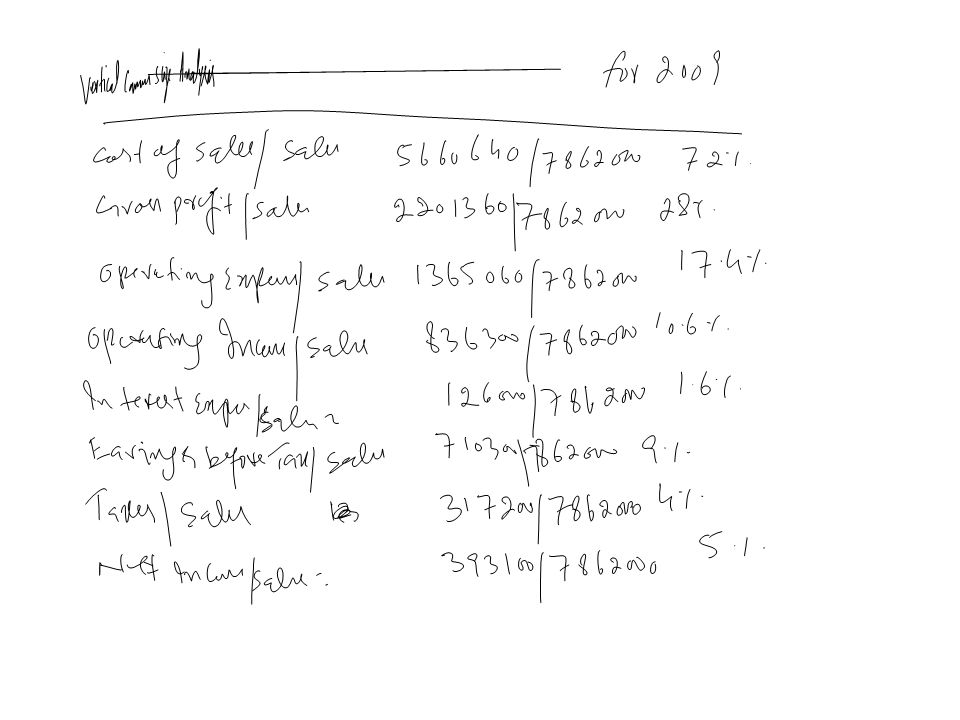 Vertical Common size Analysis for 2009
Cost of sales/ sales 5660640/7862000 72%.
Gross profit/sales 2201360/7862000 28%.
Operating Expens/ sales 1365060/7862000 17.4%.
Operating Incom/sales 836300/7862000 10.6%.
Interest expen/sales = 126000/7862000 1.6%.
Earings before Tax/ sales 710300/7862000 9%.
Taxes/ Sales 317200/7862000 4%.
Net Incom/sales = 393100/7862000 5%.